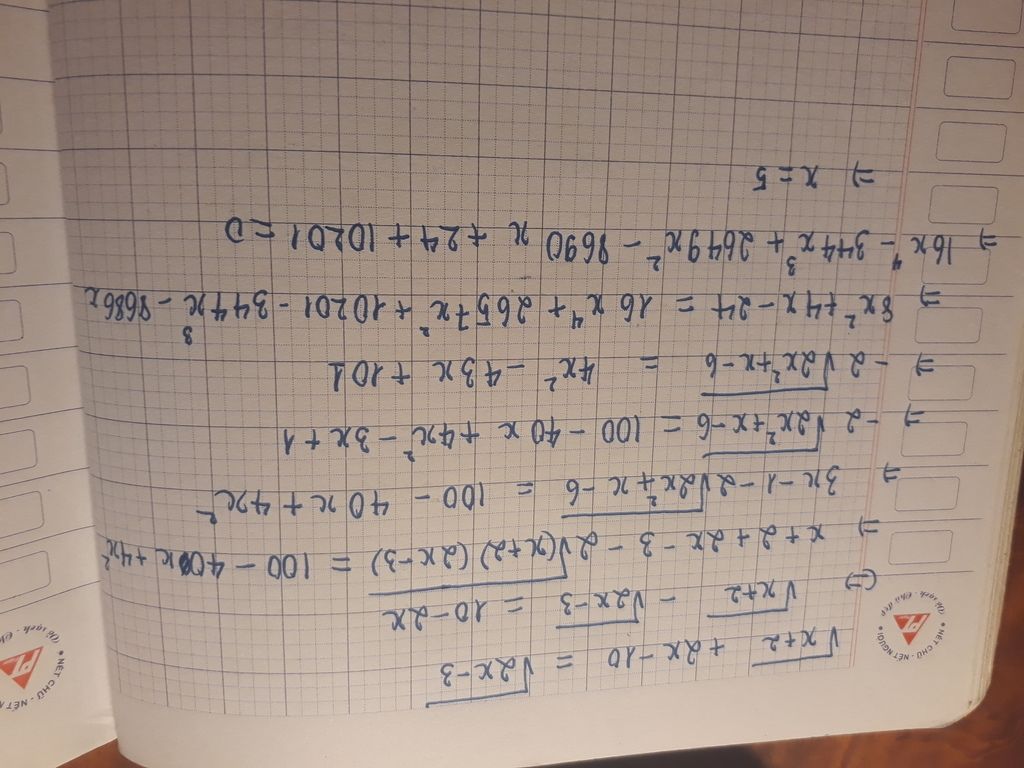 √x+2 + 2x - 10 = √2x-3
(=) √x+2 - √2x-3 = 10 - 2x
=) x + 2 + 2x - 3 - 2√(x+2)(2x-3) = 100 - 40x + 4x²
=) 3x - 1 - 2√2x²+x-6 = 100 - 40x + 4x²
=) -2√2x²+x-6 = 100 - 40x + 4x² - 3x + 1
=) -2√2x²+x-6 = 4x² - 43x + 101
=) 8x² + 4x - 24 = 16x⁴ + 2657x² + 10201 - 344x³ - 8686x
=) 16x⁴ - 344x³ + 2649x² - 8690x + 24 + 10201 = 0
=) x = 5
NÉT CHỮ - NẾT NGƯỜI
PL
NÉT CHỮ - NẾT NGƯỜI
PL